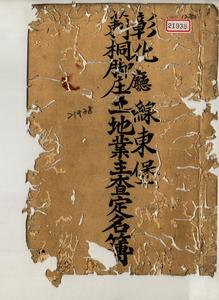 彰化廳線東保
莿桐脚庄土地業主查定名簿
21938
21938